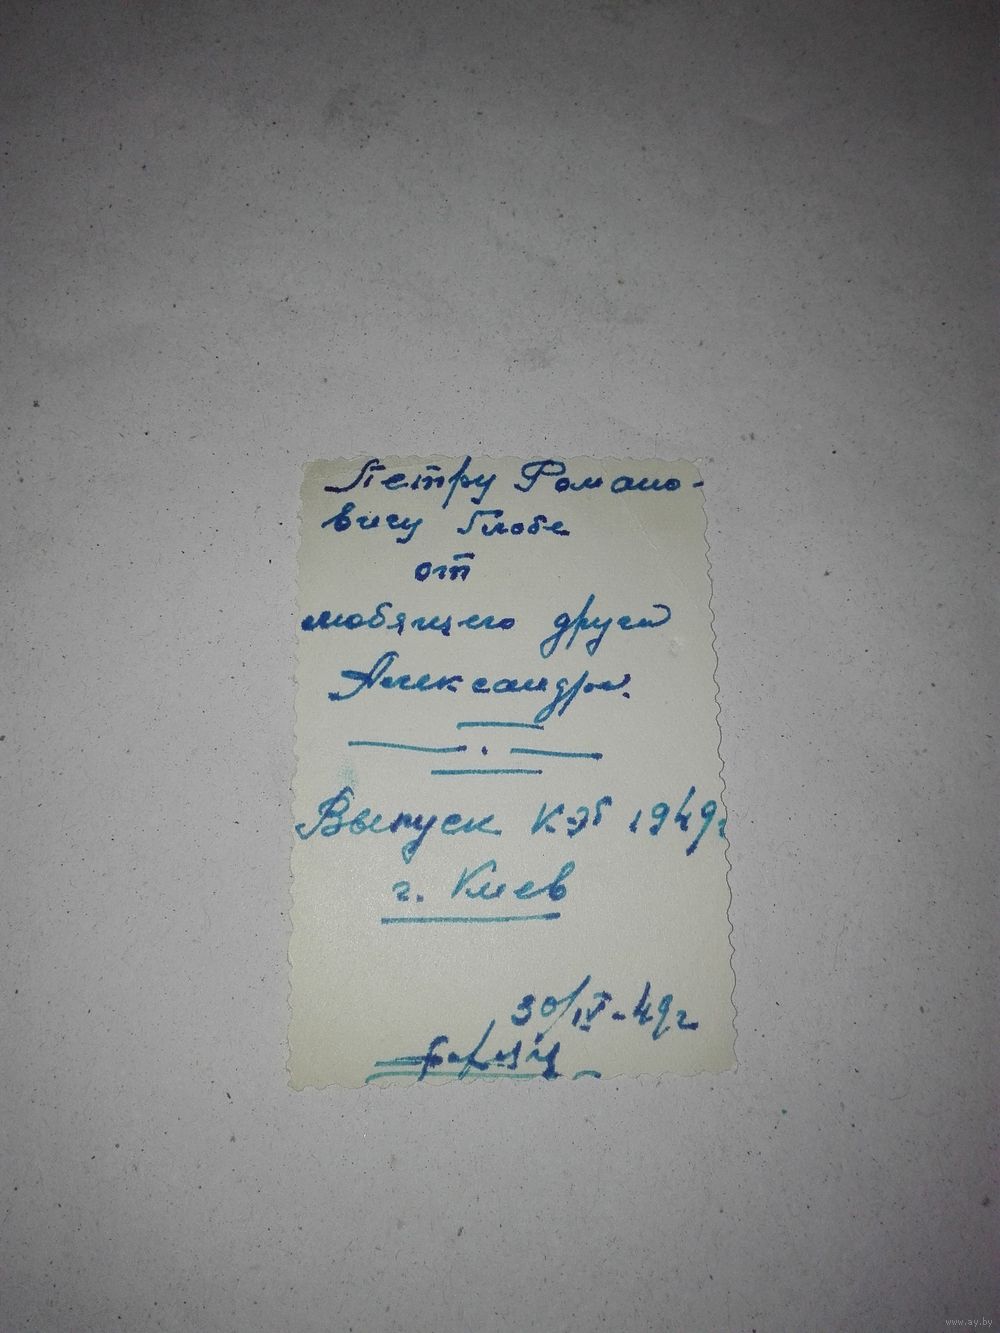 Петру Романо-
вичу Глобе
от
любящего друга
Александра.
Выпуск КЭТ 1949г
г. Киев
30/IV-49г
www.ay.by